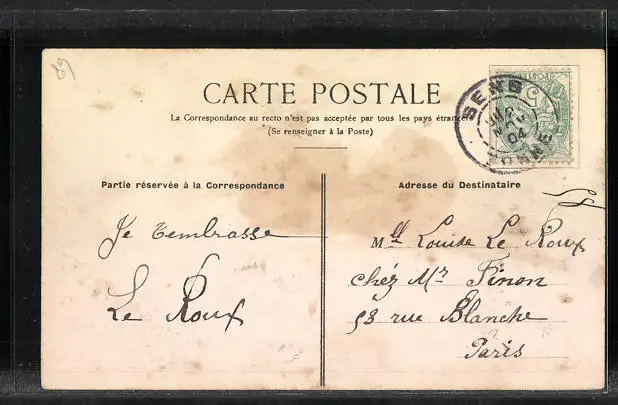 89
CARTE POSTALE
La Correspondance au recto n'est pas acceptée par tous les pays étran
(Se renseigner à la Poste)
SENS
NOV
04
YONNE
Partie réservée à la Correspondance
Adresse du Destinataire
Je t'embrasse
Le Roux
Mlle Louise Le Roux
chéz Mr Finon
53 rue Blanche
Paris